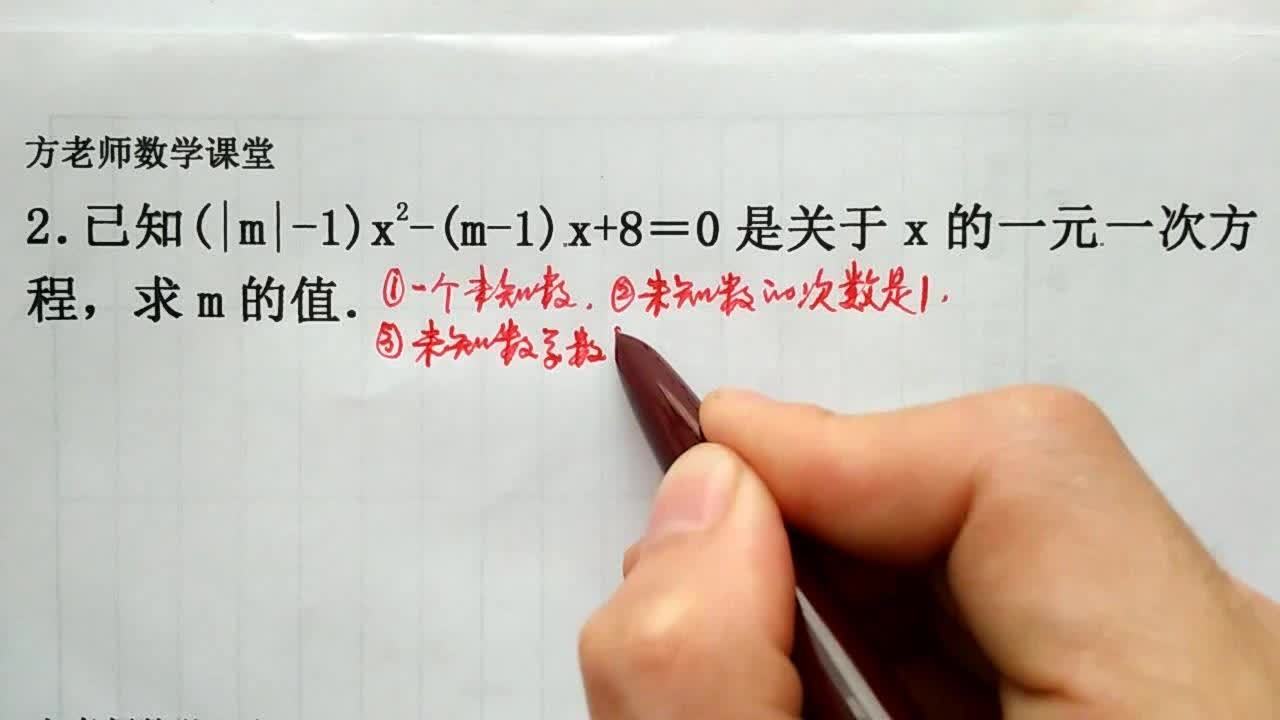 方老师数学课堂
2.已知(|m|-1)x²-(m-1)x+8=0是关于x的一元一次方
程，求m的值.
①一个未知数.②未知数的次数是1.
③未知数系数